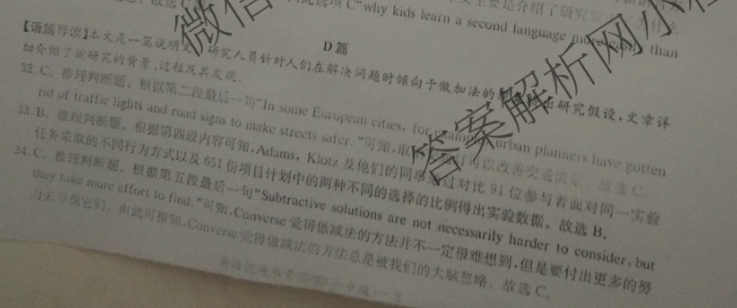 故选C 选项 C"why kids learn a second language more easily than
D篇
【语篇导读】本文是一篇说明文。研究人员针对人们在解决问题时倾向于做加法的 研究假设,文章详
细介绍了该研究的背景、过程及其发现。
32. C。推理判断题。根据第二段最后一句"In some European cities, for example, urban planners have gotten
rid of traffic lights and road signs to make streets safer."可知,取 可以改善交通流 。故选C。
33. B。推理判断题。根据第四段内容可知,Adams, Klotz 及他们的同事通过对比 91 位参与者面对同一实验
任务采取的不同行为方式以及 651 份项目计划中的两种不同的选择的比例得出实验数据。故选 B。
34. C。推理判断题。根据第五段最后一句"Subtractive solutions are not necessarily harder to consider, but
they take more effort to find."可知,Converse 觉得做减法的方法并不一定很难想到,但是要付出更多的努
力去寻找它们。由此可推知,Converse 觉得做减法的方法总是被我们的大脑忽略。故选 C。
答案解析网